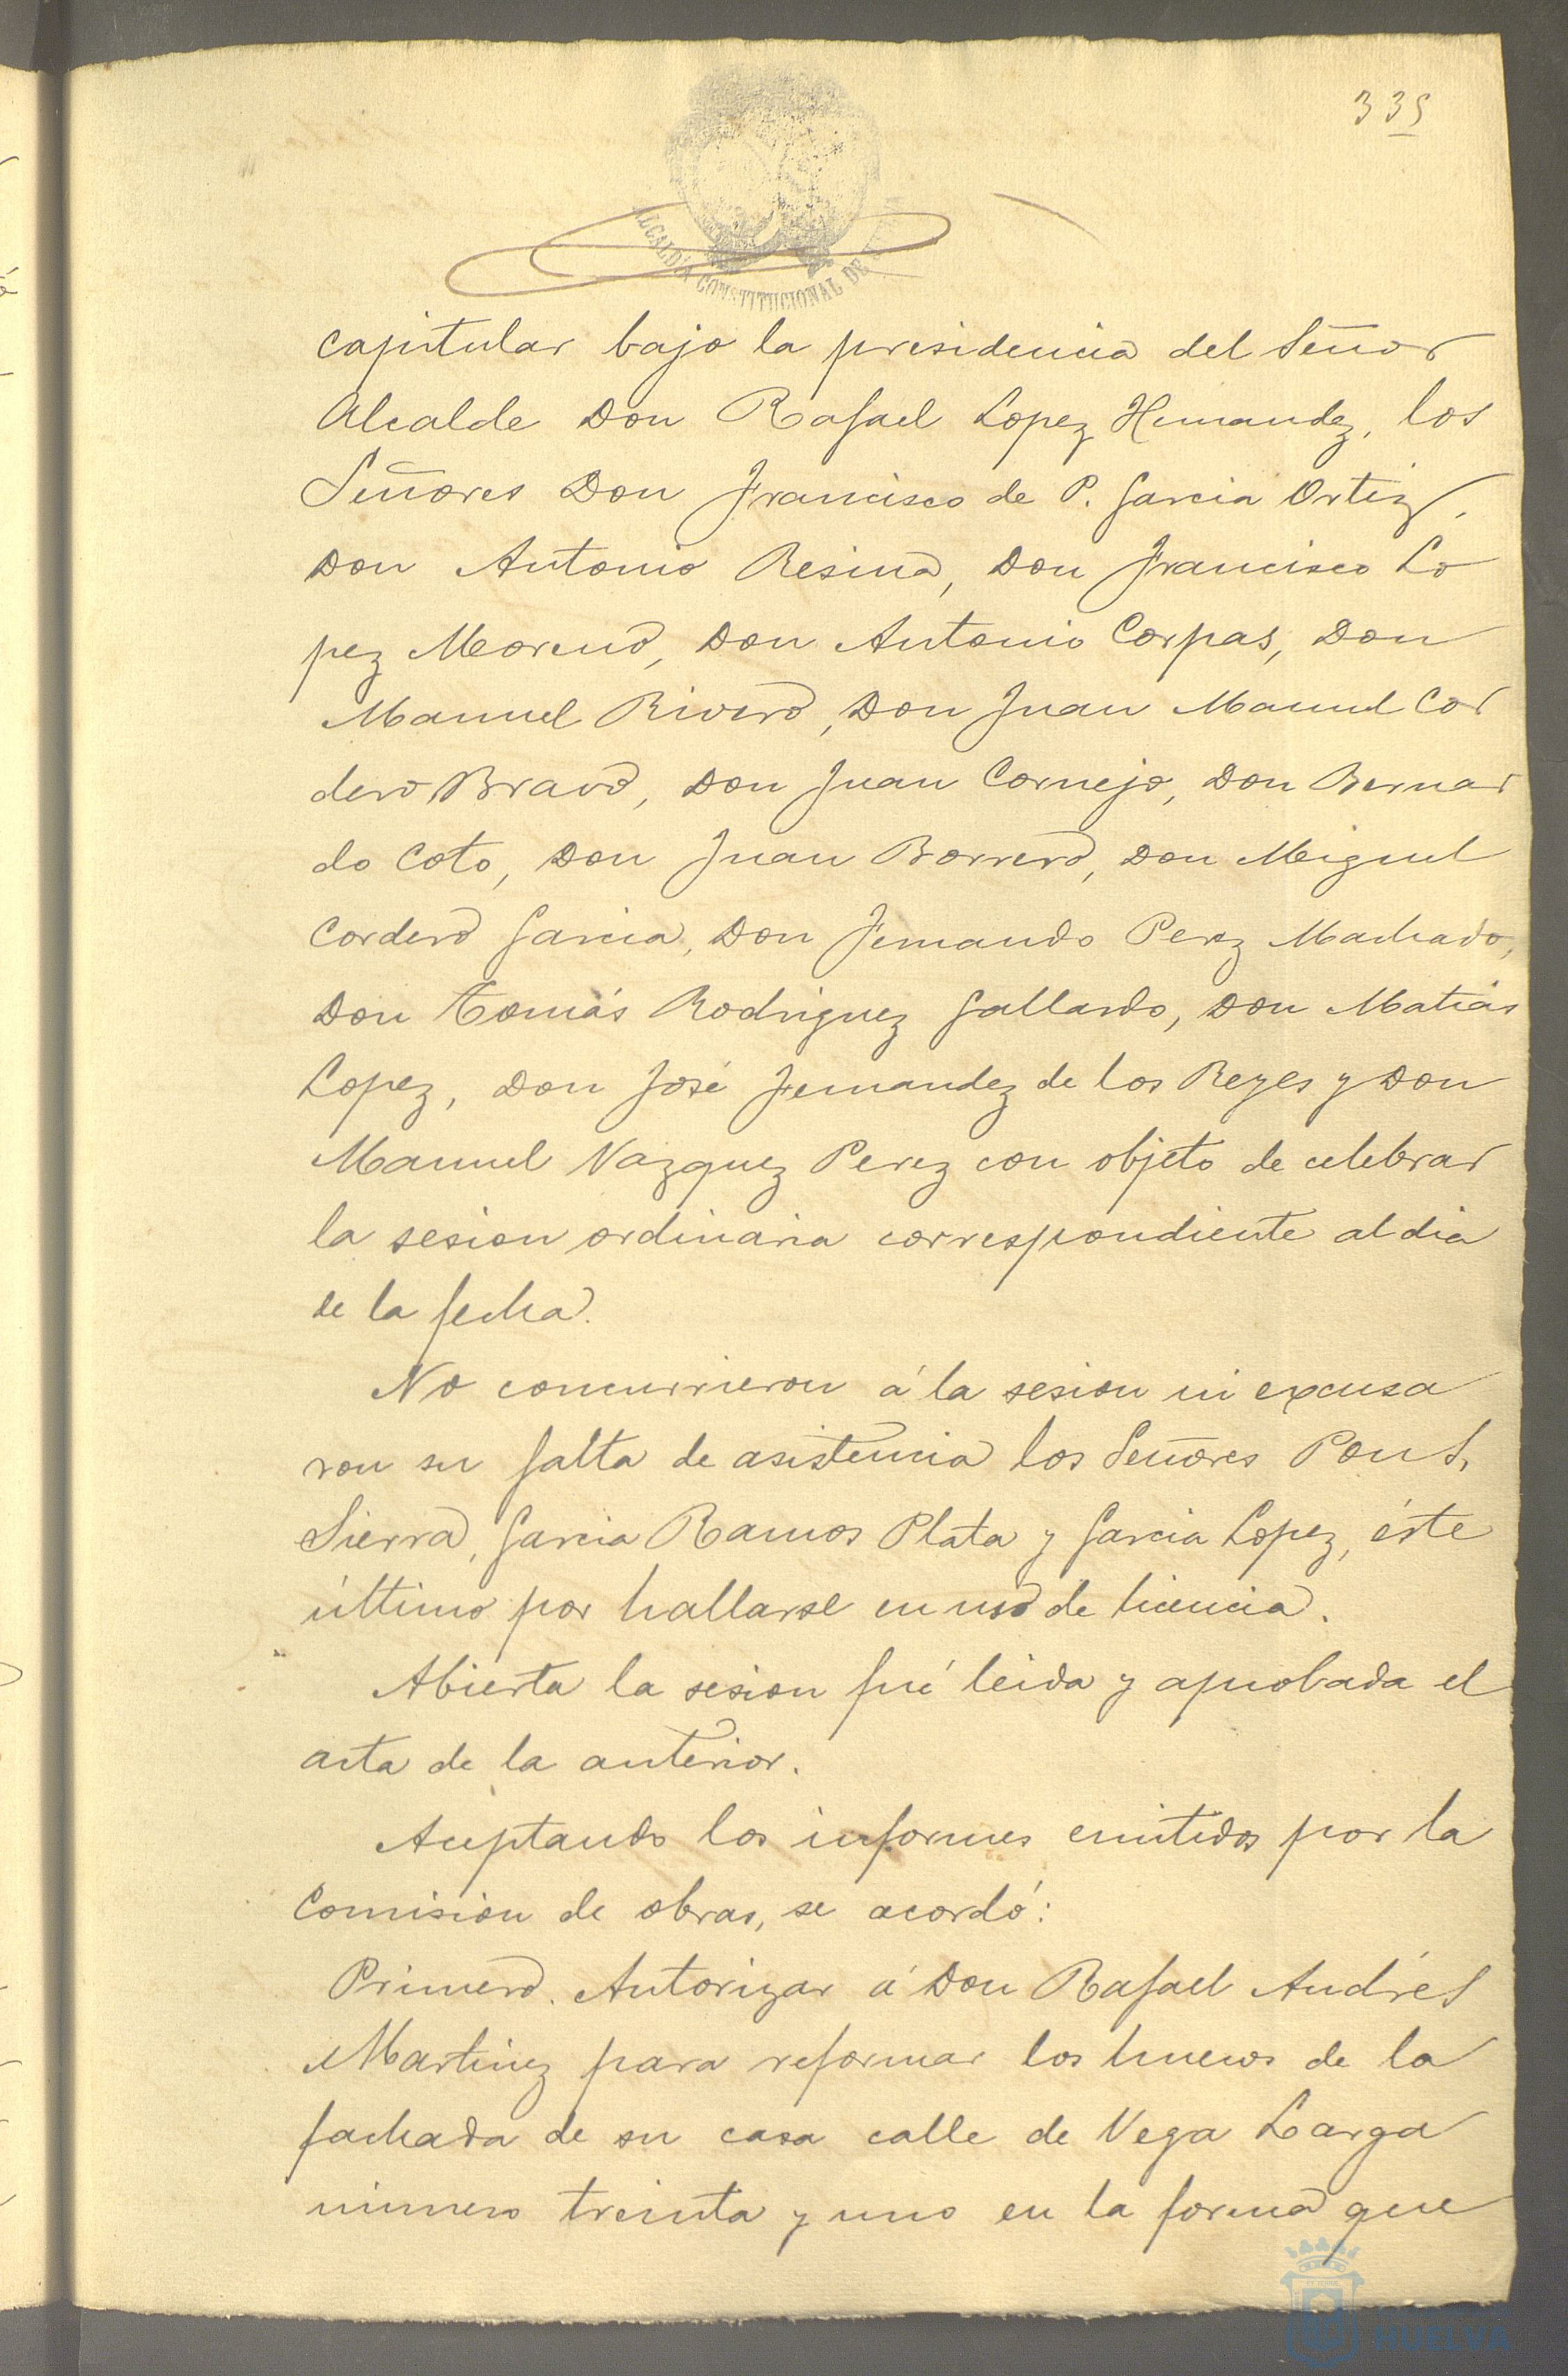 335
ALCALDÍA CONSTITUCIONAL DE
capitular bajo la presidencia del Señor
Alcalde Don Rafael Lopez Hernandez, los
Señores Don Francisco de P. Garcia Ortiz,
Don Antonio Resina, Don Francisco Lo
pez Moreno, Don Antonio Corpas, Don
Manuel Rivero, Don Juan Manuel Cor
dero Bravo, Don Juan Cornejo, Don Bernar
do Coto, Don Juan Borrero, Don Miguel
Cordero Garcia, Don Fernando Perez Machado,
Don Tomás Rodriguez Gallardo, Don Matias
Lopez, Don José Fernandez de los Reyes y Don
Manuel Vazquez Perez con objeto de celebrar
la sesion ordinaria correspondiente al dia
de la fecha.
No concurrieron á la sesion ni excusa
ron su falta de asistencia los Señores Pons,
Sierra, Garcia Ramos Plata y Garcia Lopez, éste
último por hallarse en uso de licencia.
Abierta la sesion fué leida y aprobada el
acta de la anterior.
Aceptando los informes emitidos por la
Comision de obras, se acordó:
Primero. Autorizar á Don Rafael Andrés
Martinez para reformar los huecos de la
fachada de su casa calle de Vega Larga
número treinta y uno en la forma que
HUELVA